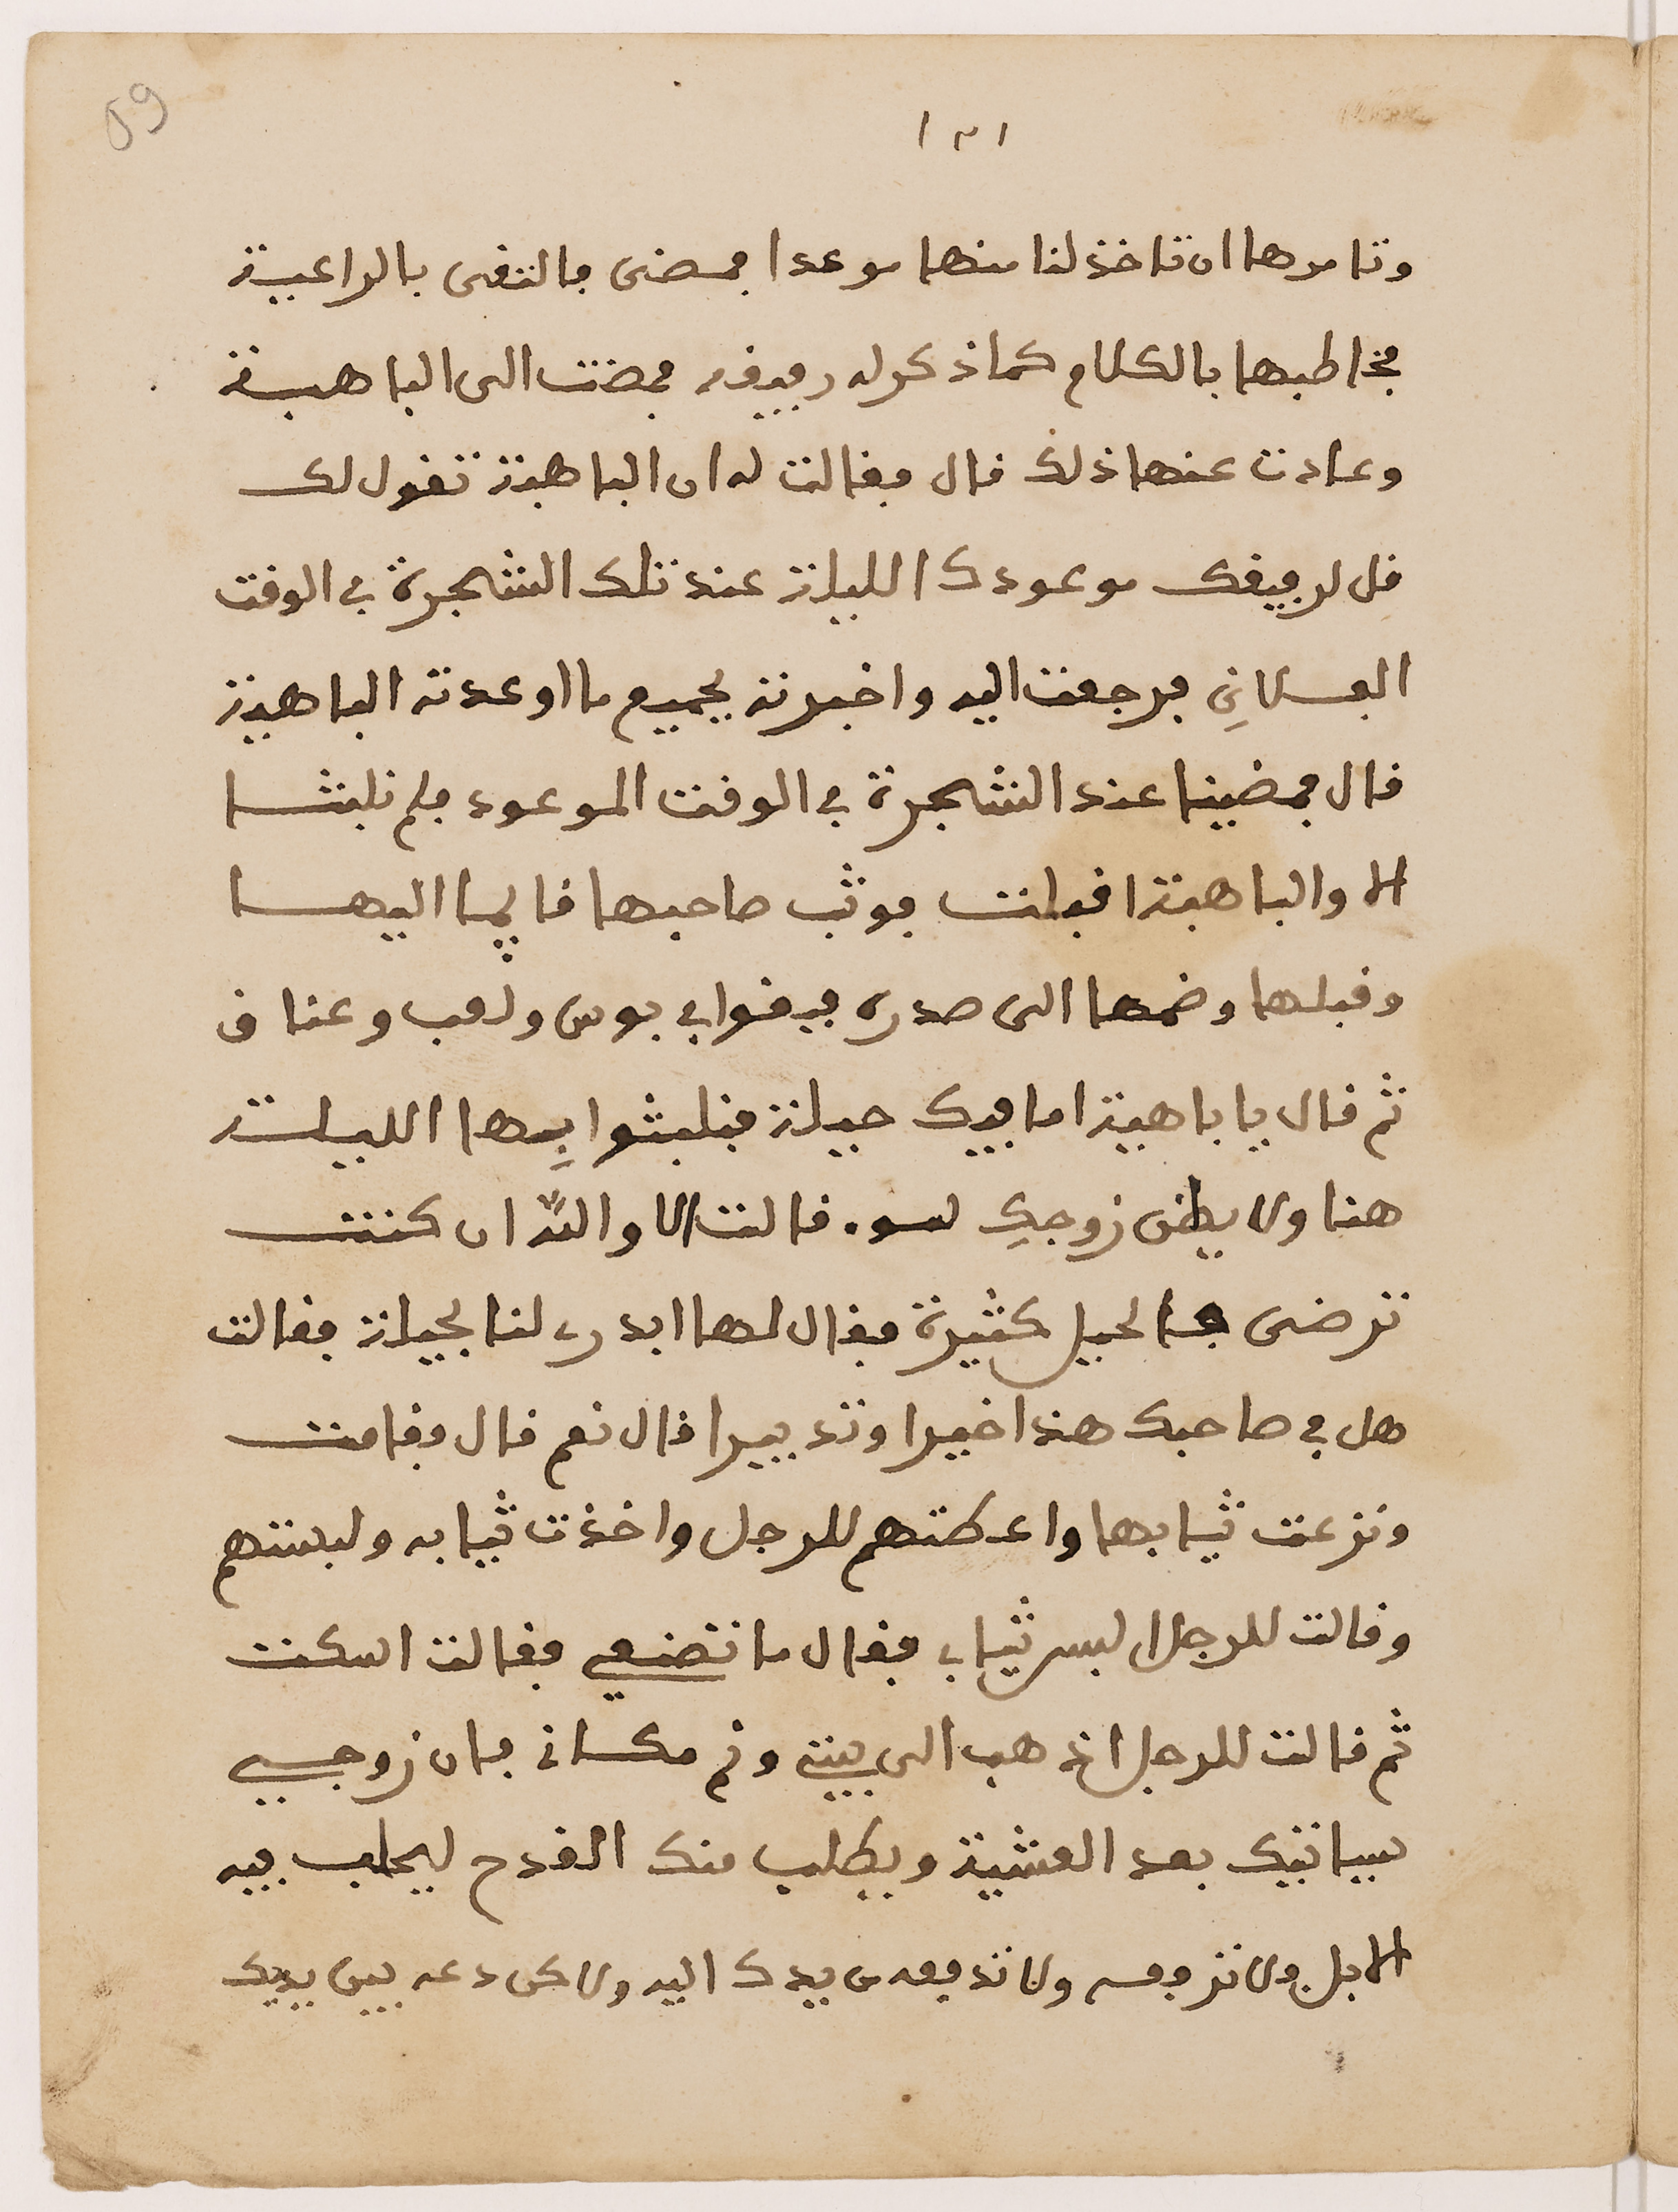 59
١٢١
وتامرها ان تاخذ لنا منها موعدا فمضى فالتقى بالراعية
فخاطبها بالكلام كما ذكر له رفيقه فمضت الى الباهية
وعادت عنها ذلك قال فقالت له ان الباهية تقول لك
قل لرفيقك موعودك الليلة عند تلك الشجرة في الوقت
الفلاني فرجعت اليه واخبرته بجميع ما اوعدته الباهية
قال فمضينا عند الشجرة في الوقت الموعود فلم نلبثا
الا والباهية اقبلت فوثب صاحبها قايما اليها
وقبلها وضمها الى صدره فبقوا في بوس ولعب وعناق
ثم قال يا باهية اما فيك حيلة فنلبثوا فيها الليلة
هنا ولا يظن زوجك لسو. قالت لا والله ان كنت
ترضى فالحيل كثيرة فقال لها ابدري لنا بحيلة فقالت
هل في صاحبك هذا خيرا وتدبيرا قال نعم قال فقامت
ونزعت ثيابها واعطتهم للرجل واخذت ثيابه ولبستهم
وقالت للرجل البس ثيابي فقال ما تصنعي فقالت اسكت
ثم قالت للرجل اذهب الى بيتي ونم مكاني فان زوجي
سياتيك بعد العشية ويطلب منك القدح ليحلب فيه
الابل ولا تزوفه ولا تدفعه من يدك اليه ولاكن دعه بين يديك